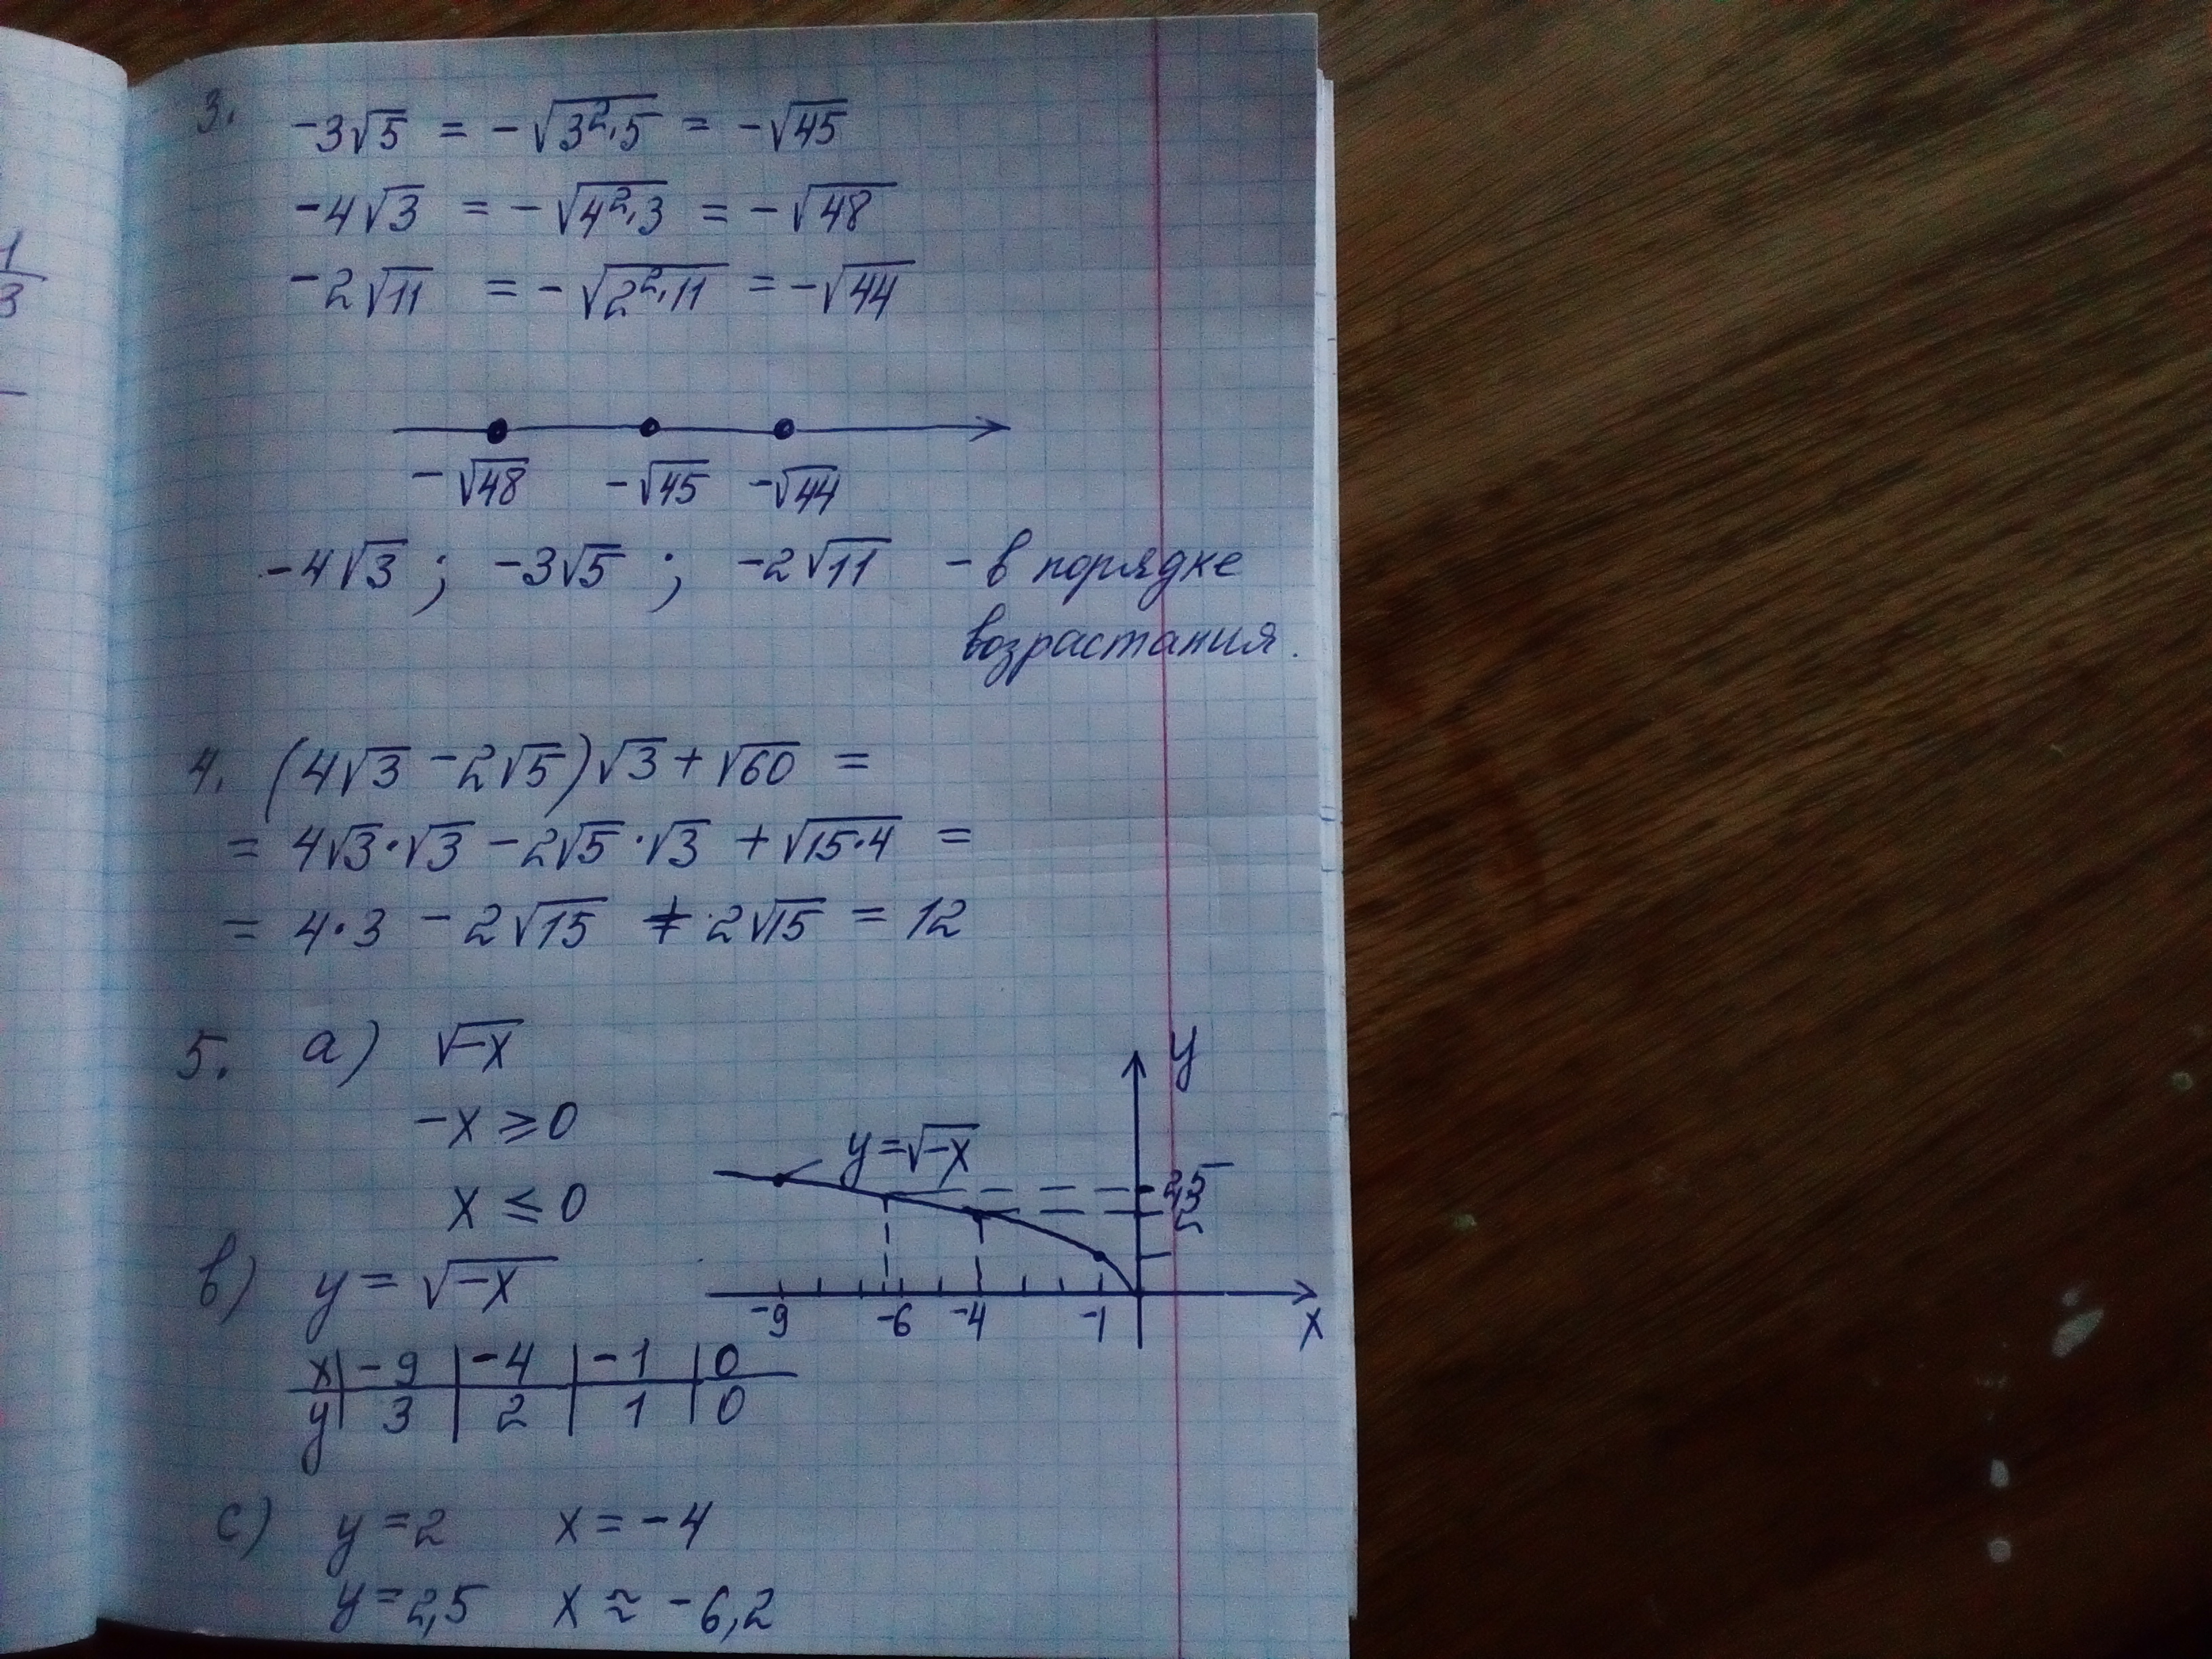 1
3
3. -3√5 = -√3²·5 = -√45
-4√3 = -√4²·3 = -√48
-2√11 = -√2²·11 = -√44
-√48 -√45 -√44
-4√3 ; -3√5 ; -2√11 - в порядке
возрастания.
4. (4√3 - 2√5)√3 + √60 =
= 4√3·√3 - 2√5·√3 + √15·4 =
= 4·3 - 2√15 + 2√15 = 12
5. а) √-x
-x ≥ 0
x ≤ 0
y
y=√-x
2,5
2
-9 -6 -4 -1
x
в) y = √-x
x | -9 | -4 | -1 | 0
y | 3 | 2 | 1 | 0
с) y = 2 x = -4
y = 2,5 x ≈ -6,2